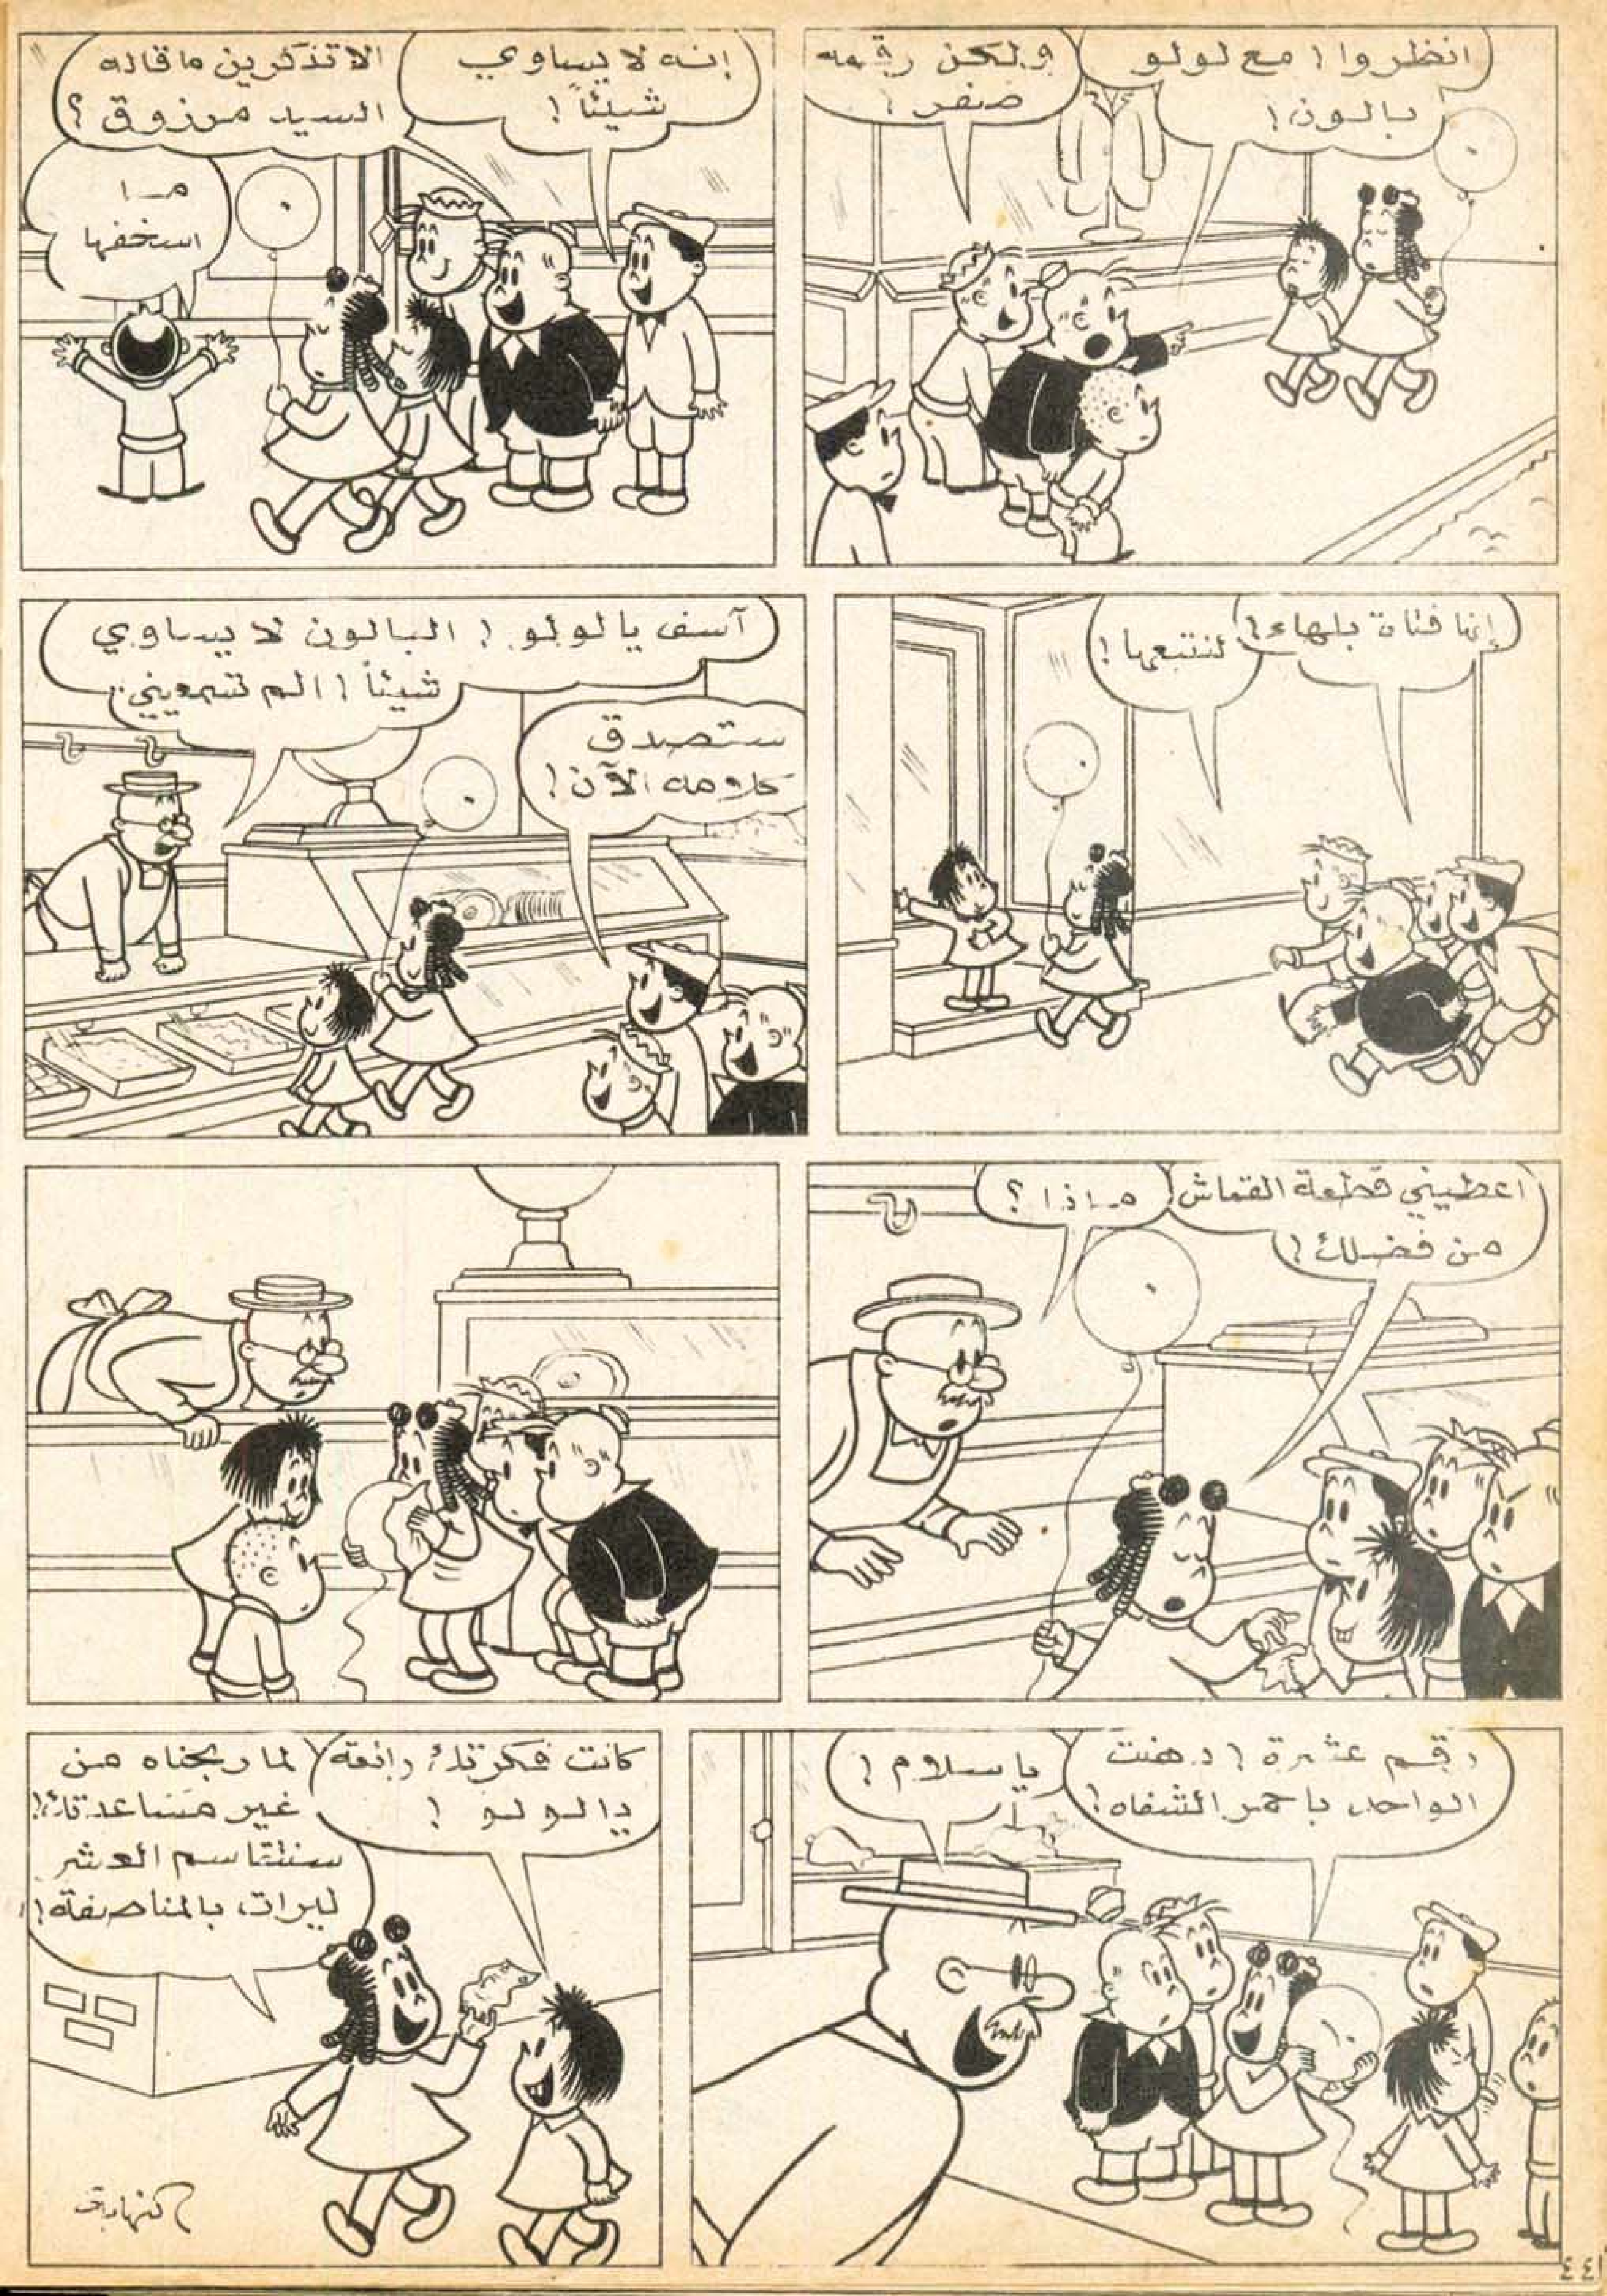 انظروا! مع لولو
بالون!
ولكن رقمه
صفر!
إنه لا يساوي
شيئاً!
الا تذكرين ما قاله
السيد مرزوق؟
ما
اسخفها
إنها فتاة بلهاء!
لنتبعها!
آسف يا لولو! البالون لا يساوي
شيئاً! الم تسمعيني.
ستصدق
كلامه الآن!
اعطيني قطعة القماش
من فضلك!
ماذا؟
رقم عشرة! دهنت
الواحد باحمر الشفاه!
يا سلام!
كانت فكرتك رائعة
يا لولو!
لما ربحناه من
غير مساعدتك!
سنتقاسم العشر
ليرات بالمناصفة!